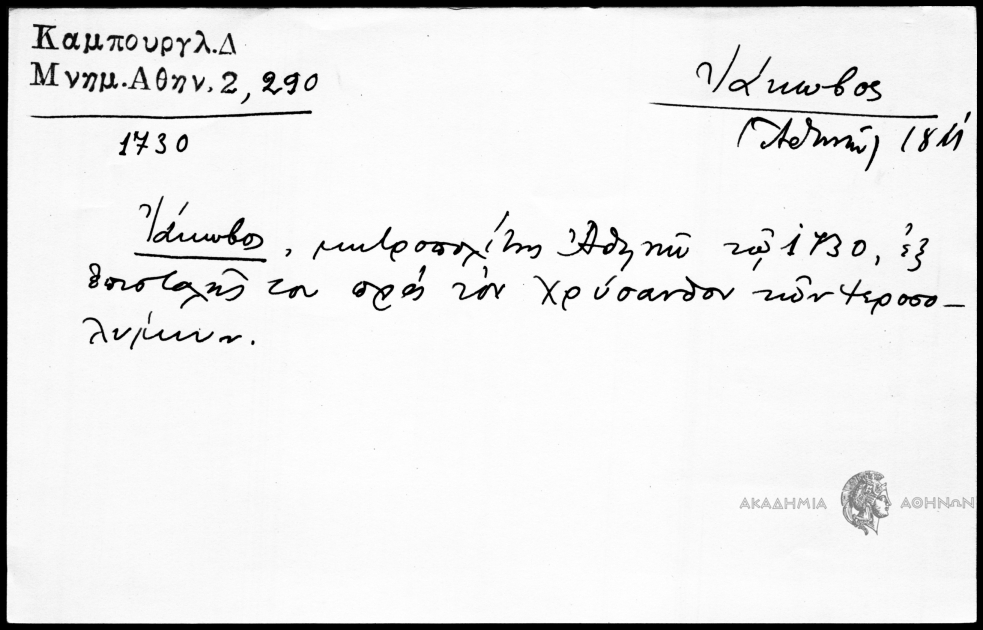 Καμπουργλ.Δ
Μνημ.Αθην. 2, 290
1730
Ἰάκωβος
(Ἀθηνῶν) 18
Ἰάκωβος, μητροπολίτης Ἀθηνῶν τῷ 1730, ἐξ
ἐπιστολῆς του πρὸς τὸν Χρύσανθον τῶν Ἱεροσο-
λύμων.
ΑΚΑΔΗΜΙΑ ΑΘΗΝΩΝ